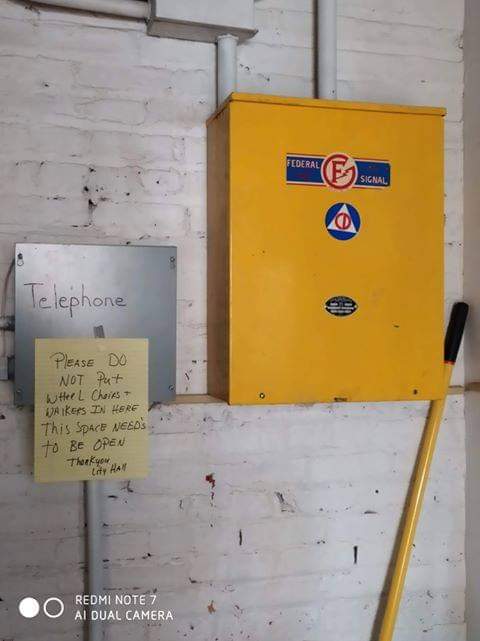 FEDERAL SIGNAL
CD
Telephone
PLEASE DO
NOT Put
WHEEL Chairs +
WALKERS IN HERE
This SPACE NEED's
to BE OPEN
Thankyou
City Hall
REDMI NOTE 7
AI DUAL CAMERA